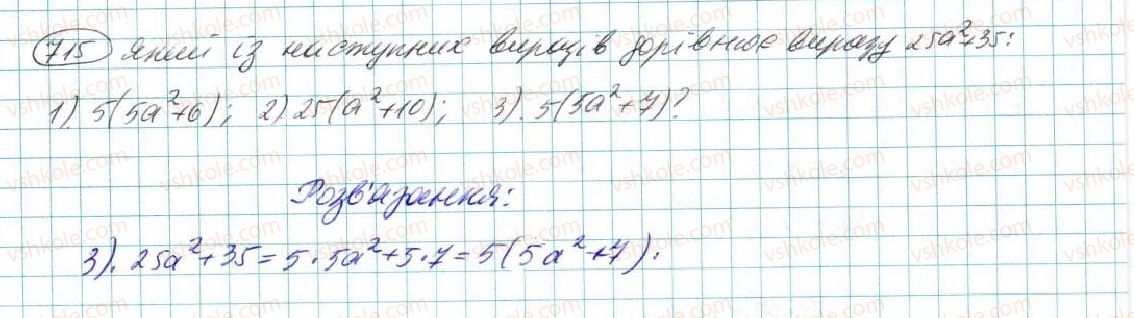 715 Який із наступних виразів дорівнює виразу 25a²+35:
1). 5(5a²+6); 2) 25(a²+10); 3). 5(5a²+7)?
Розв'язання:
3). 25a²+35=5·5a²+5·7=5(5a²+7).